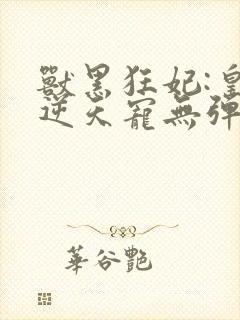 獸黑狂妃:皇
逆天寵無彈
華谷艷